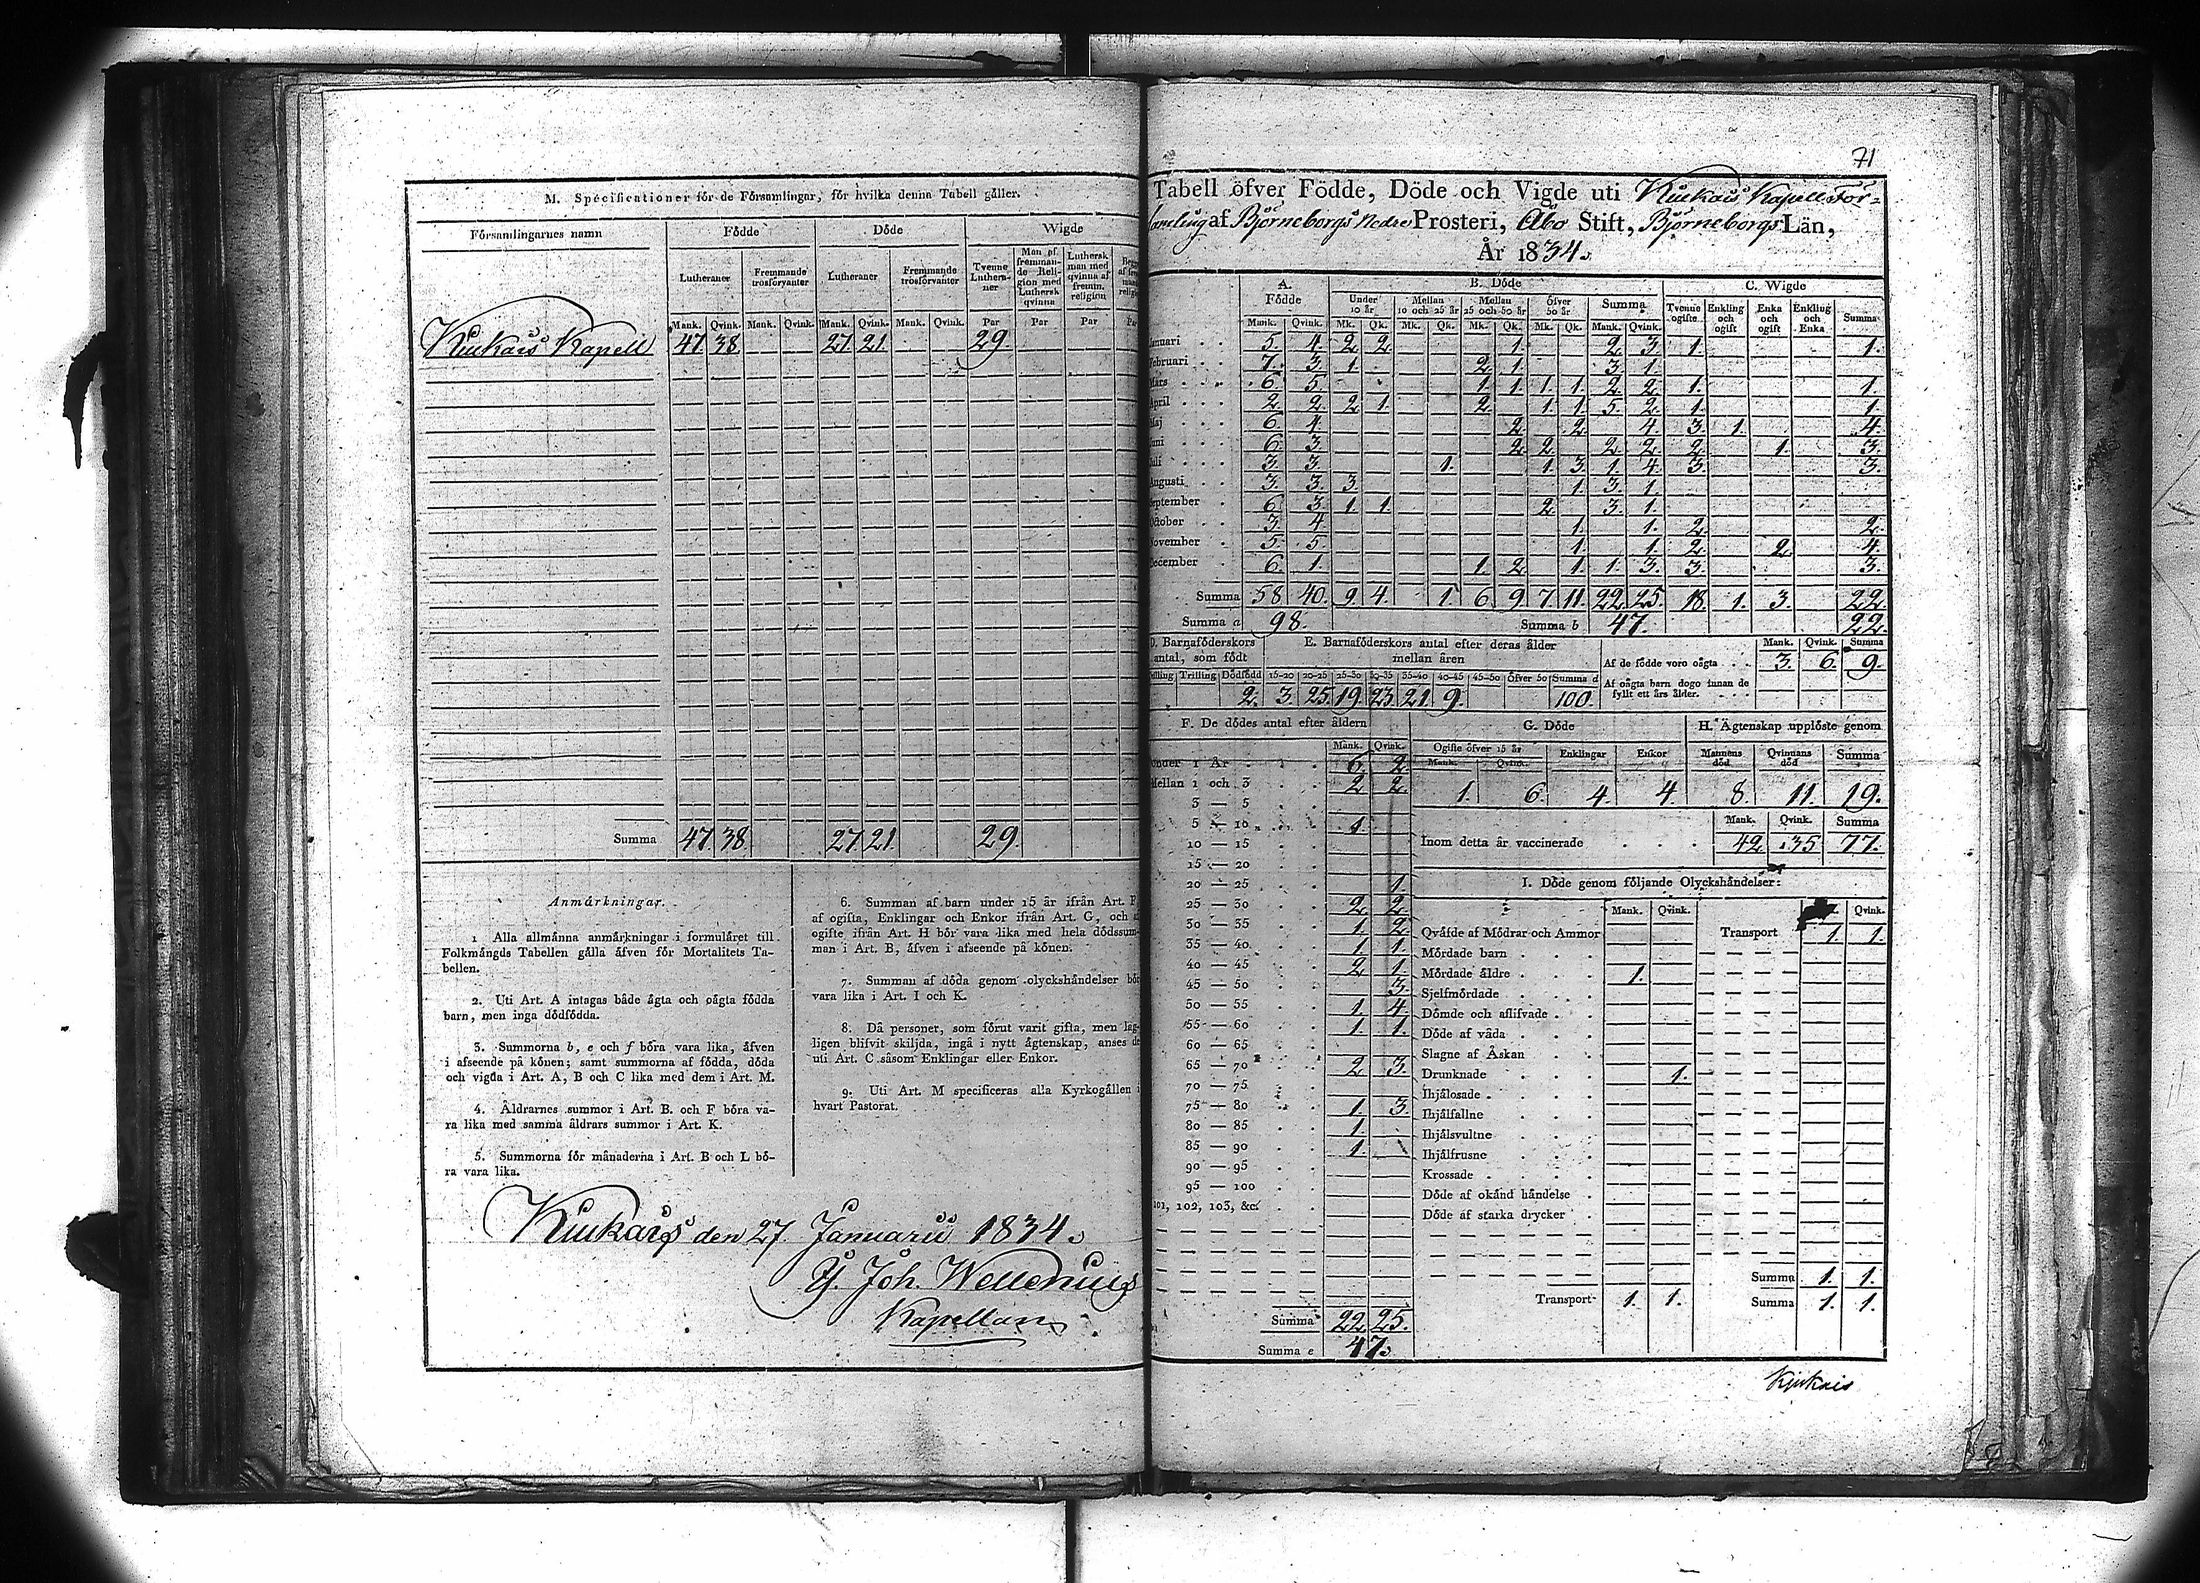 M. Specificationer för de Församlingar, för hvilka denna Tabell gäller.
Församlingarnes namn | Födde | Döde | Wigde
Lutheraner | Fremmande trosförvanter | Lutheraner | Fremmande trosförvanter | Tvenne Lutheraner | Man af fremmande Religion med Luthersk qvinna | Luthersk man med qvinna af fremm. religion
Mank. Qvink. Mank. Qvink. Mank. Qvink. Mank. Qvink. Par Par Par
Kiukais Kapell 47 38 27 21 29.
Summa 47 38 27 21 29.
Anmärkningar.
1 Alla allmänna anmärkningar i formuläret till
Folkmängds Tabellen gälla äfven för Mortalitets Ta-
bellen.
2. Uti Art. A intagas både ägta och oägta födda
barn, men inga dödfödda.
3. Summorna b, e och f böra vara lika, äfven
i afseende på könen; samt summorna af födda, döda
och vigda i Art. A, B och C lika med dem i Art. M.
4. Åldrarnes summor i Art. B. och F böra va-
ra lika med samma åldrars summor i Art. K.
5. Summorna för månaderna i Art. B och L bö-
ra vara lika.
6. Summan af barn under 15 år ifrån Art. F,
af ogifta, Enklingar och Enkor ifrån Art. G, och
ogifte ifrån Art. H bör vara lika med hela dödssum-
man i Art. B, äfven i afseende på könen.
7. Summan af döda genom olyckshändelser bör
vara lika i Art. I och K.
8. Då personer, som förut varit gifta, men lag-
ligen blifvit skiljda, ingå i nytt ägtenskap, anses de
uti Art. C såsom Enklingar eller Enkor.
9. Uti Art. M specificeras alla Kyrkogällen i
hvart Pastorat.
Kiukais den 27 Januarii 1834.
Joh. Wellenius
Kapellan
71
Tabell öfver Födde, Döde och Vigde uti Kiukais Kapell För-
samling af Björneborgs Nedre Prosteri, Åbo Stift, Björneborgs Län,
År 1834.
A. Födde | B. Döde | C. Wigde
Under 10 år | Mellan 10 och 25 år | Mellan 25 och 50 år | Öfver 50 år | Summa | Tvenne ogifte | Enkling och ogift | Enka och ogift | Enkling och Enka | Summa
Mank. Qvink. Mk. Qk. Mk. Qk. Mk. Qk. Mk. Qk. Mank. Qvink.
Januari 5. 4. 2 2 1. 2 3. 1. 1.
Februari 7. 3. 1. 2 1. 3. 1.
Mars 6. 5. 1. 1. 1. 1. 2 2. 1. 1.
April 2. 2. 2 1. 2. 1. 1. 5. 2. 1. 1.
Maj 6. 4. 2. 2. 4. 3. 1. 4.
Juni 6. 3. 2 2. 2 2. 2. 1. 3.
Juli 3. 3. 1. 1. 3. 1. 4. 3. 3.
Augusti 3. 3. 3. 1. 3. 1.
September 6. 3. 1. 1. 2. 3. 1.
October 3. 4. 1. 1. 2. 2.
November 5. 5. 1. 1. 2. 2. 4.
December 6. 1. 1. 2. 1. 1. 3. 3. 3.
Summa 58 40. 9. 4. 1. 6. 9. 7. 11. 22. 25. 18. 1. 3. 22.
Summa a 98. Summa b 47. 22.
D. Barnaföderskors antal, som födt
Trilling Dödfödd
2.
E. Barnaföderskors antal efter deras ålder mellan åren
15-20 20-25 25-30 30-35 35-40 40-45 45-50 Öfver 50 Summa d
3. 25. 19. 23. 21. 9. 100.
Mank. Qvink. Summa
Af de födde voro oägta 3. 6. 9.
Af oägta barn dogo innan de fyllt ett års ålder.
F. De dödes antal efter åldern
Mank. Qvink.
Under 1 År 6. 2.
Mellan 1 och 3 2 2.
3 — 5
5 — 10 1.
10 — 15
15 — 20
20 — 25 1.
25 — 30 2. 2.
30 — 35 1. 2.
35 — 40 1. 1.
40 — 45 2. 1.
45 — 50 3.
50 — 55 1. 4.
55 — 60 1. 1.
60 — 65
65 — 70 2. 3.
70 — 75
75 — 80 1. 3.
80 — 85 1.
85 — 90 1.
90 — 95
95 — 100
101, 102, 103, &c.
Summa 22 25.
Summa e 47.
G. Döde
Ogifte öfver 15 år | Enklingar | Enkor
Mank. Qvink.
1. 6. 4. 4.
H. Ägtenskap upplöste genom
Mannens död | Qvinnans död | Summa
8. 11. 19.
Mank. Qvink. Summa
Inom detta år vaccinerade 42 35 77.
I. Döde genom följande Olyckshändelser:
Mank. Qvink. Qvink.
Qväfde af Mödrar och Ammor Transport 1. 1.
Mördade barn
Mördade äldre 1.
Sjelfmördade
Dömde och aflifvade
Döde af våda
Slagne af Åskan
Drunknade 1.
Ihjälosade
Ihjälfallne
Ihjälsvultne
Ihjälfrusne
Krossade
Döde af okänd händelse
Döde af starka drycker
Summa 1. 1.
Transport 1. 1. Summa 1. 1.
Kjukais